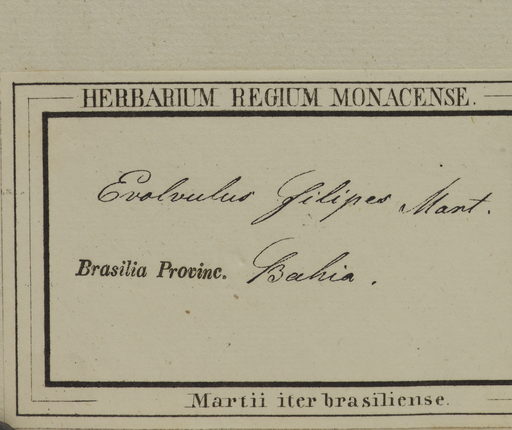 HERBARIUM REGIUM MONACENSE.
Evolvulus filipes Mart.
Brasilia Provinc. Bahia.
Martii iter brasiliense.